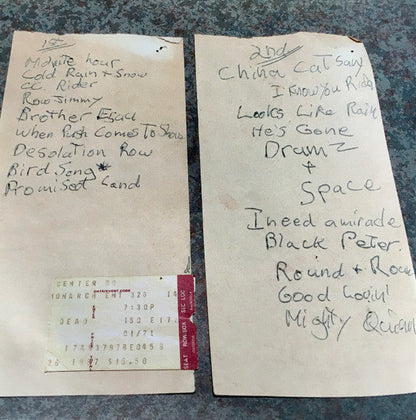 1st
Midnite hour
Cold Rain + Snow
CC Rider
Row Jimmy
Brother Esau
When Push Comes To Shove
Desolation Row
Bird Song*
Promised Land
CENTER
MONARCH ENT
7:30P
DEAD
01/71
1987 $16.50
2nd
China Cat Sun
I Know You Rider
Looks Like Rain
He's Gone
Drumz
+
Space
I need a miracle
Black Peter
Round + Roun
Good Lovin'
Mighty Quinn